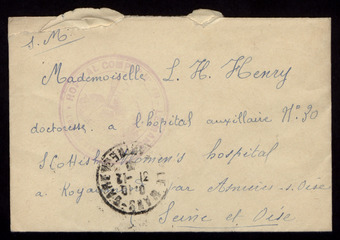 S. M.
Mademoiselle L. H. Henry
HOPITAL
doctoresse à l'hôpital auxillaire N° 30
Scottish Women's hospital
à Royau par Asnières-s-Oise
Seine et Oise
LE MANS-GARE